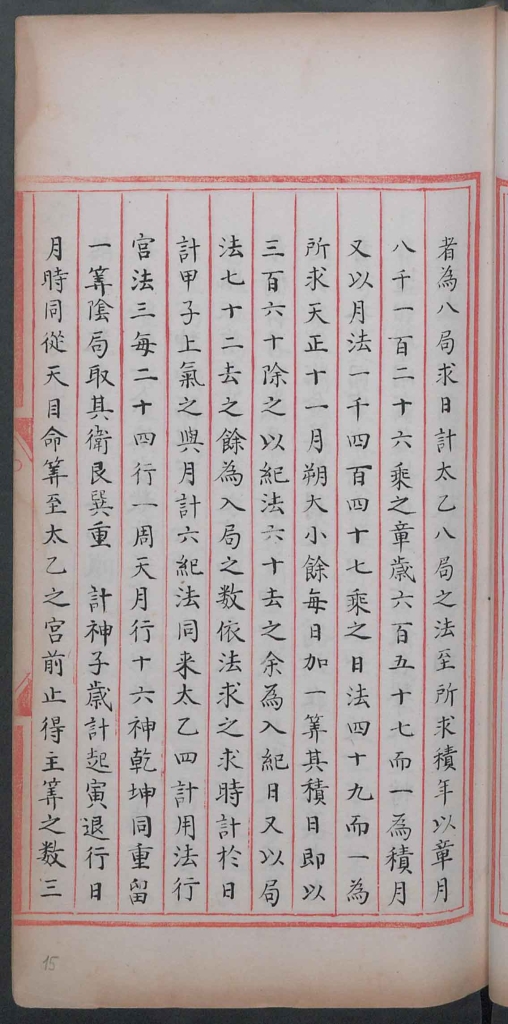 者為八局求日計太乙八局之法至所求積年以章月
八千一百二十六乘之章歲六百五十七而一為積月
又以月法一千四百四十七乘之日法四十九而一為
所求天正十一月朔大小餘每日加一筭其積日即以
三百六十除之以紀法六十去之余為入紀日又以局
法七十二去之餘為入局之数依法求之求時計於日
計甲子上氣之與月計六紀法同来太乙四計用法行
宮法三每二十四行一周天月行十六神乾坤同重留
一筭陰局取其衛艮巽重 計神子歲計起寅退行日
月時同從天目命筭至太乙之宮前止得主筭之数三
15